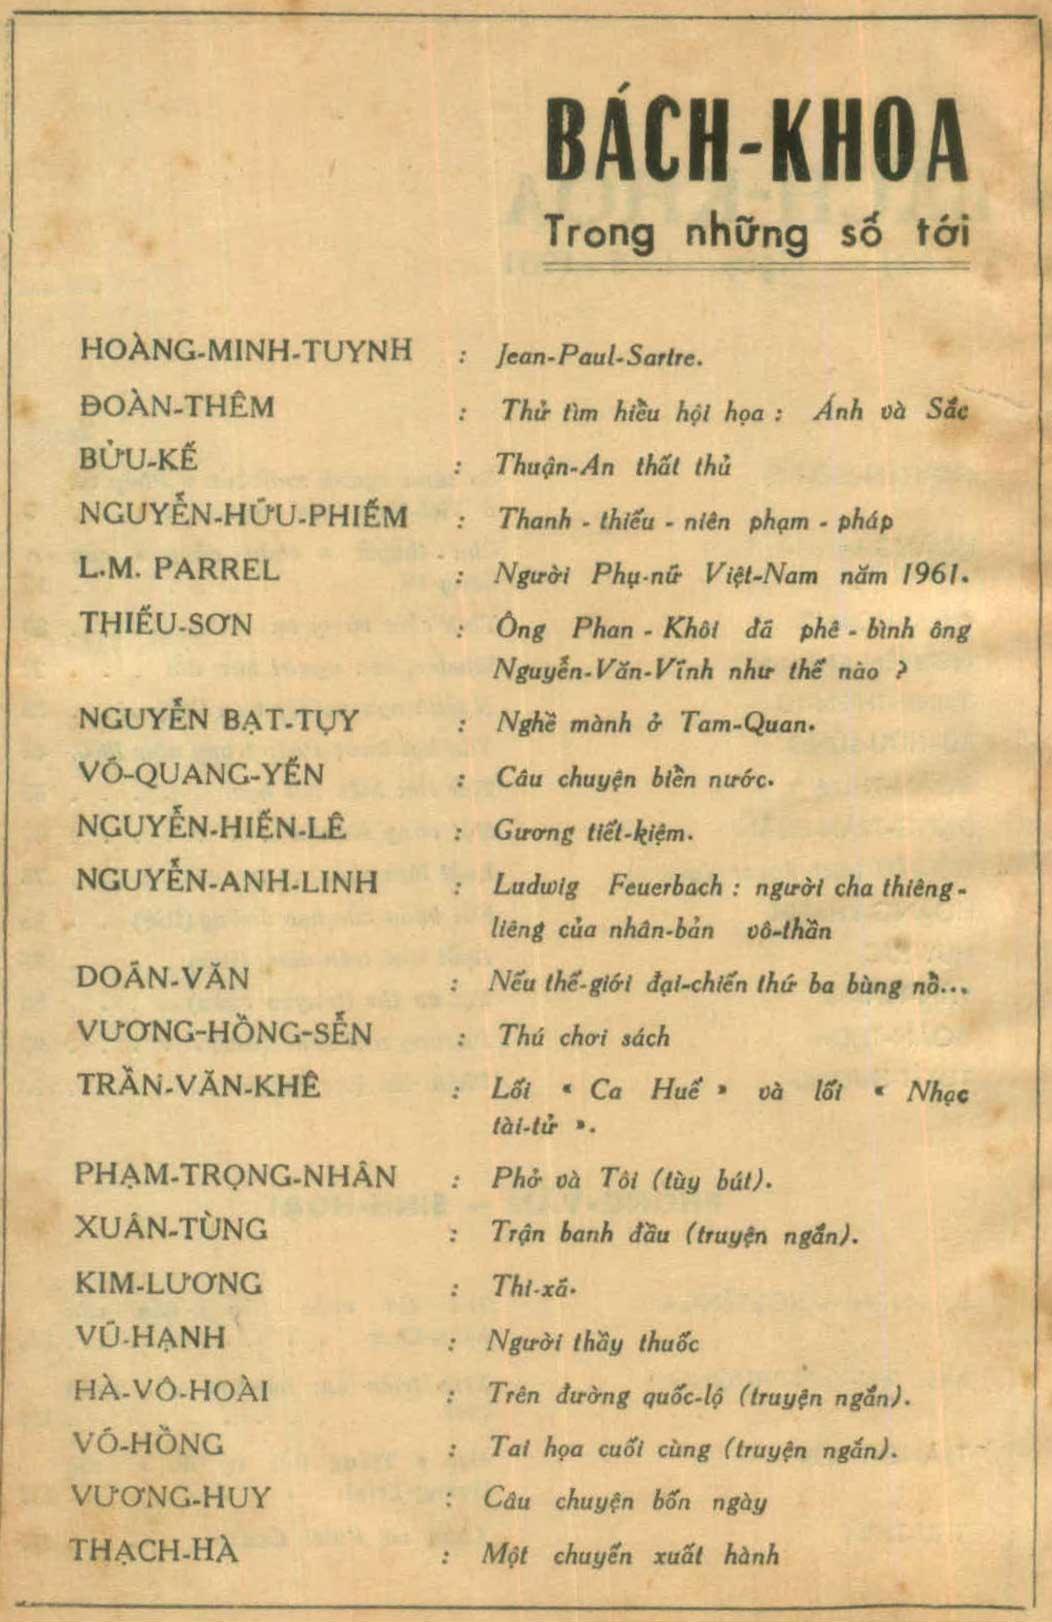 BÁCH-KHOA
Trong những số tới
HOÀNG-MINH-TUYNH : Jean-Paul-Sartre.
ĐOÀN-THÊM : Thử tìm hiểu hội họa : Ánh và Sắc
BỬU-KẾ : Thuận-An thất thủ
NGUYỄN-HỮU-PHIẾM : Thanh - thiếu - niên phạm - pháp
L.M. PARREL : Người Phụ-nữ Việt-Nam năm 1961.
THIẾU-SƠN : Ông Phan - Khôi đã phê - bình ông
Nguyễn-Văn-Vĩnh như thế nào ?
NGUYỄN BẠT-TỤY : Nghề mành ở Tam-Quan.
VÕ-QUANG-YẾN : Câu chuyện biển nước.
NGUYỄN-HIẾN-LÊ : Gương tiết-kiệm.
NGUYỄN-ANH-LINH : Ludwig Feuerbach : người cha thiêng-
liêng của nhân-bản vô-thần
DOÃN-VĂN : Nếu thế-giới đại-chiến thứ ba bùng nổ...
VƯƠNG-HỒNG-SỂN : Thú chơi sách
TRẦN-VĂN-KHÊ : Lối « Ca Huế » và lối « Nhạc
tài-tử ».
PHẠM-TRỌNG-NHÂN : Phở và Tôi (tùy bút).
XUÂN-TÙNG : Trận banh đầu (truyện ngắn).
KIM-LƯƠNG : Thi-xã.
VŨ-HẠNH : Người thầy thuốc
HÀ-VÔ-HOÀI : Trên đường quốc-lộ (truyện ngắn).
VÕ-HỒNG : Tai họa cuối cùng (truyện ngắn).
VƯƠNG-HUY : Câu chuyện bốn ngày
THẠCH-HÀ : Một chuyến xuất hành